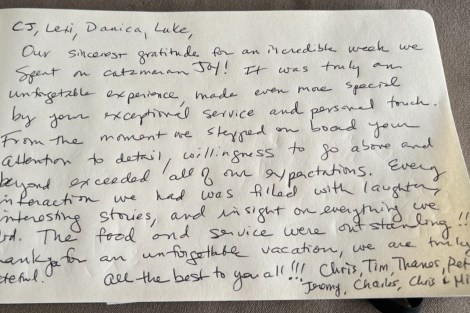 CJ, Lexi, Danica, Luke,
Our sincerest gratitude for an incredible week we
spent on catamaran Joy! It was truly an
unforgetable experience, made even more special
by your exceptional service and personal touch.
From the moment we stepped on board your
attention to detail, willingness to go above and
beyond exceeded all of our expectations. Every
interaction we had was filled with laughter,
interesting stories, and insight on everything we
. The food and service were outstanding!!
for an unforgettable vacation, we are truly
. All the best to you all!!! Chris, Tim, Thanos,
Jeremy, Charles, Chris &